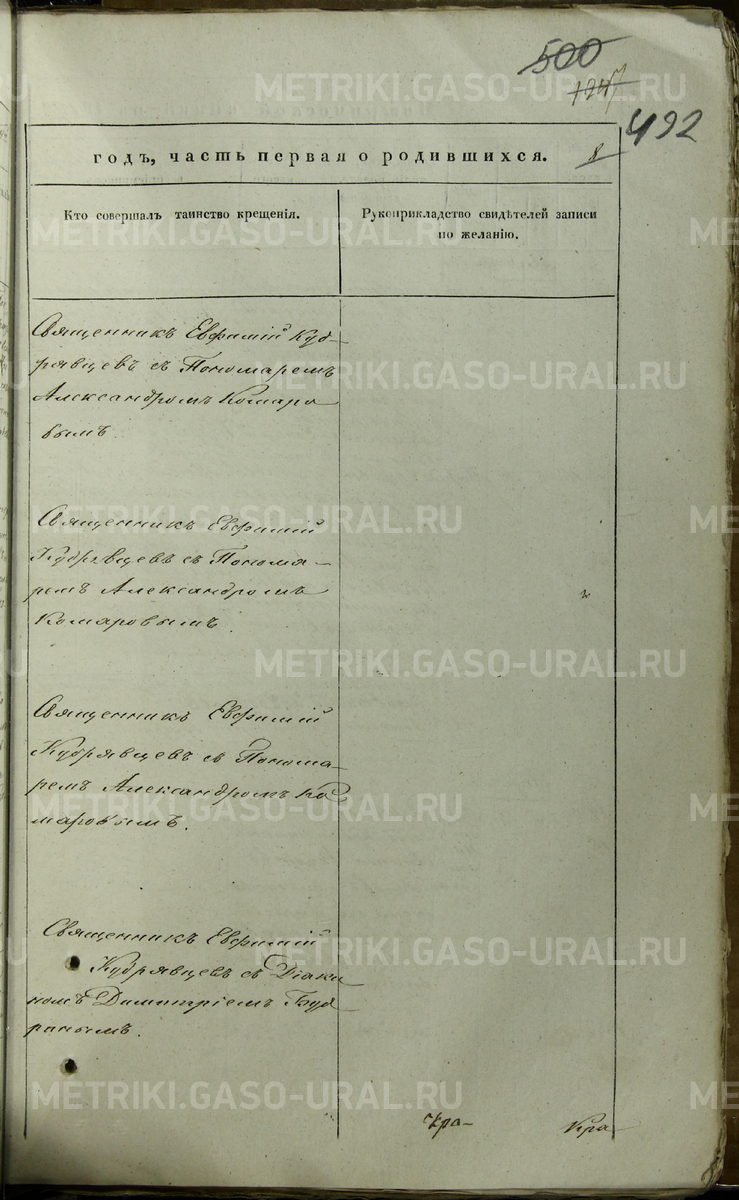 500
492
METRIKI.GASO-URAL.RU
годъ, часть первая о родившихся. 8
Кто совершалъ таинство крещенія.
Рукоприкладство свидѣтелей записи
по желанію.
Священникъ Евфимій Куд-
рявцевъ съ Пономаремъ
Александромъ Комаро
вымъ.
Священникъ Евфимій
Кудрявцевъ съ Понома-
ремъ Александромъ
Комаровымъ.
Священникъ Евфимій
Кудрявцевъ съ Понома-
ремъ Александромъ Ко
маровымъ.
Священникъ Евфимій
Кудрявцевъ съ Діако
номъ Димитріемъ
Кра-
Кра